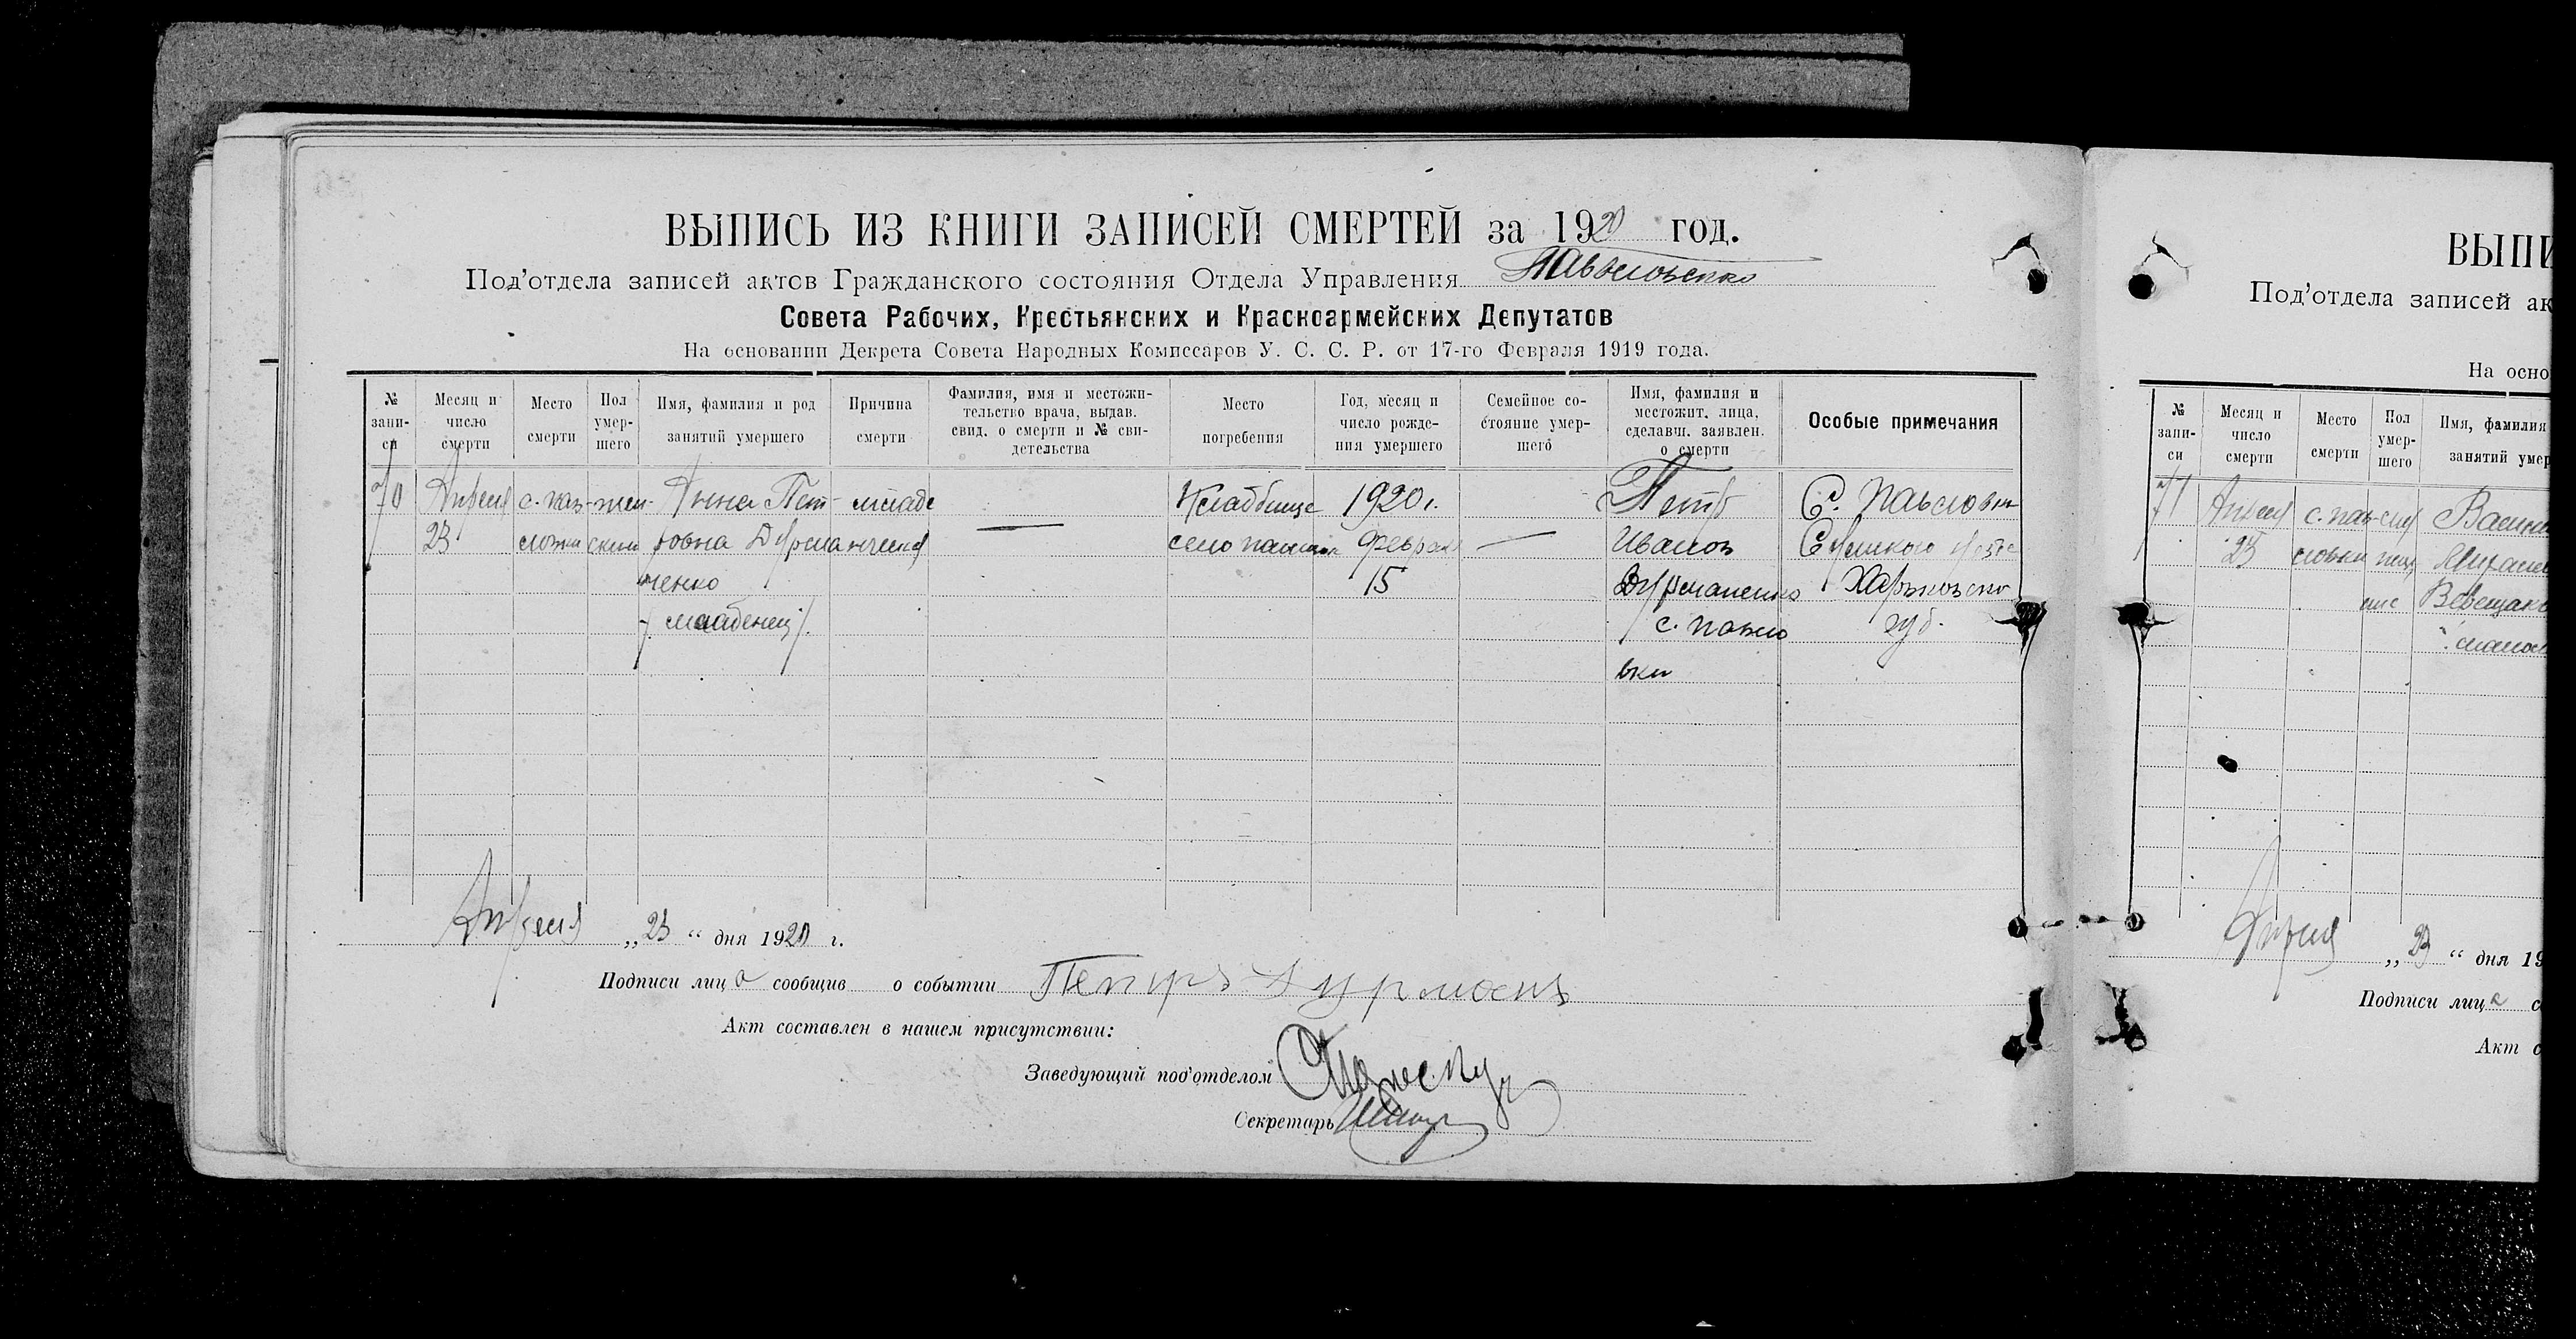 ВЫПИСЬ ИЗ КНИГИ ЗАПИСЕЙ СМЕРТЕЙ за 1920 год.
Под'отдела записей актов Гражданского состояния Отдела Управления Павловско
Совета Рабочих, Крестьянских и Красноармейских Депутатов
На основании Декрета Совета Народных Комиссаров У. С. С. Р. от 17-го Февраля 1919 года.
№ запи-
си
Месяц и
число
смерти
Место
смерти
Пол
умер-
шего
Имя, фамилия и род
занятий умершего
Причина
смерти
Фамилия, имя и местожи-
тельство врача, выдав.
свид. о смерти и № сви-
детельства
Место
погребения
Год, месяц и
число рожде-
ния умершего
Семейное со-
стояние умер-
шего
Имя, фамилия и
местожит. лица,
сделавш. заявлен.
о смерти
Особые примечания
70
Апреля
23
с. Пав-
ловки
жен-
ский
Анна Пет-
ровна Дурман
ченко
/младенец/.
младе
нческая
Кладбище
село Павловки
1920 г.
Февраля
15
Петр
Иванов
Дурманенко
с. Павло
вки
С. Павловки
Сумского уезда
Харьковско
губ.
Апреля „23“ дня 1920 г.
Подписи лица сообщив о событии Петръ Дурмоен
Акт составлен в нашем присутствии:
Заведующий под'отделом
Секретарь
ВЫПИ
Под'отдела записей ак
На осно
№
запи-
си
Месяц и
число
смерти
Место
смерти
Пол
умер-
шего
Имя, фамилия
занятий умер
71
Апреля
23
с. Пав-
ловки
Апреля „23“ дня 19
Подписи лица с
Акт с